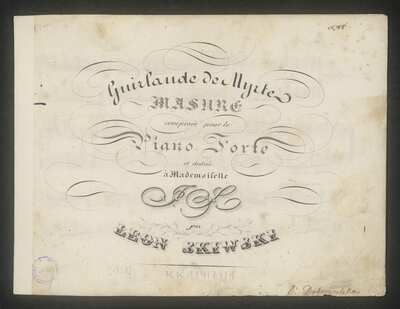 Guirlande de Myrte
MASURE
composée pour le
Piano Forte
et dediée
à Mademoiselle
J S
par
LEON SKIWSKI